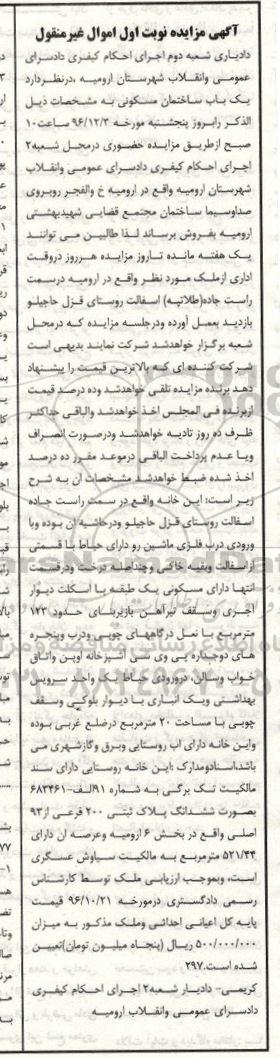 آگهی مزایده نوبت اول اموال غیرمنقول
دادیاری شعبه دوم اجرای احکام کیفری دادسرای
عمومی وانقلاب شهرستان ارومیه ،درنظردارد
یک باب ساختمان مسکونی به مشخصات ذیل
الذکر رابروز پنجشنبه مورخه ۹۶/۱۲/۳ ساعت۱۰
صبح ازطریق مزایده حضوری درمحل شعبه۲
اجرای احکام کیفری دادسرای عمومی وانقلاب
شهرستان ارومیه واقع در ارومیه خ والفجر روبروی
صداوسیما ساختمان مجتمع قضایی شهیدبهشتی
ارومیه بفروش برساند لذا طالبین می توانند
یک هفته مانده تاروز مزایده هرروز دروقت
اداری ازملک مورد نظر واقع در ارومیه درسمت
راست جاده(طلاتپه) اسفالت روستای قزل حاجیلو
بازدید بعمل آورده ودرجلسه مزایده که درمحل
شعبه برگزار خواهدشد شرکت نمایند بدیهی است
شرکت کننده ای که بالاترین قیمت را پیشنهاد
دهد برنده مزایده تلقی خواهدشد وده درصد قیمت
ازبرنده فی المجلس اخذ خواهدشد والباقی حداکثر
ظرف ده روز تادیه خواهدشد ودرصورت انصراف
ویا عدم پرداخت الباقی درموعد مقرر ده درصد
اخذ شده ضبط خواهدشد مشخصات آن به شرح
زیر است: این خانه واقع در سمت راست جاده
اسفالت روستای قزل حاجیلو ودرحاشیه آن بوده وبا
ورودی درب فلزی ماشین رو دارای حیاط با قسمتی
ازاسفالت وبقیه خاکی وچنداصله درخت ودرقسمت
انتها دارای مسکونی یک طبقه با اسکلت دیوار
آجری وسقف تیرآهن بازیربنای حدود ۱۲۳
مترمربع با نعل درگاههای چوبی ودرب وپنجره
های دوجداره پی وی سی آشپزخانه اوپن واتاق
خواب وسالن، درورودی حیاط یک واحد سرویس
بهداشتی ویک انباری با دیوار بلوکی وسقف
چوبی با مساحت ۲۰ مترمربع درضلع غربی بوده
واین خانه دارای آب روستایی وبرق وگازشهری می
باشد،اسنادومدارک :این خانه روستایی دارای سند
مالکیت تک برگی به شماره ۹۱الف-۶۸۳۴۶۱
بصورت ششدانگ پلاک ثبتی ۲۰۰ فرعی از۹۳
اصلی واقع در بخش ۶ ارومیه وعرصه آن دارای
۵۲۱/۴۴ مترمربع به مالکیت سیاوش عسگری
است، وبموجب ارزیابی ملک توسط کارشناس
رسمی دادگستری درمورخه ۹۶/۱۰/۲۱ قیمت
پایه کل اعیانی احداثی وملک مذکور به میزان
۵۰۰/۰۰۰/۰۰۰ ریال (پنجاه میلیون تومان)تعیین
شده است.۲۹۷
کریمی- دادیار شعبه۲ اجرای احکام کیفری
دادسرای عمومی وانقلاب ارومیه